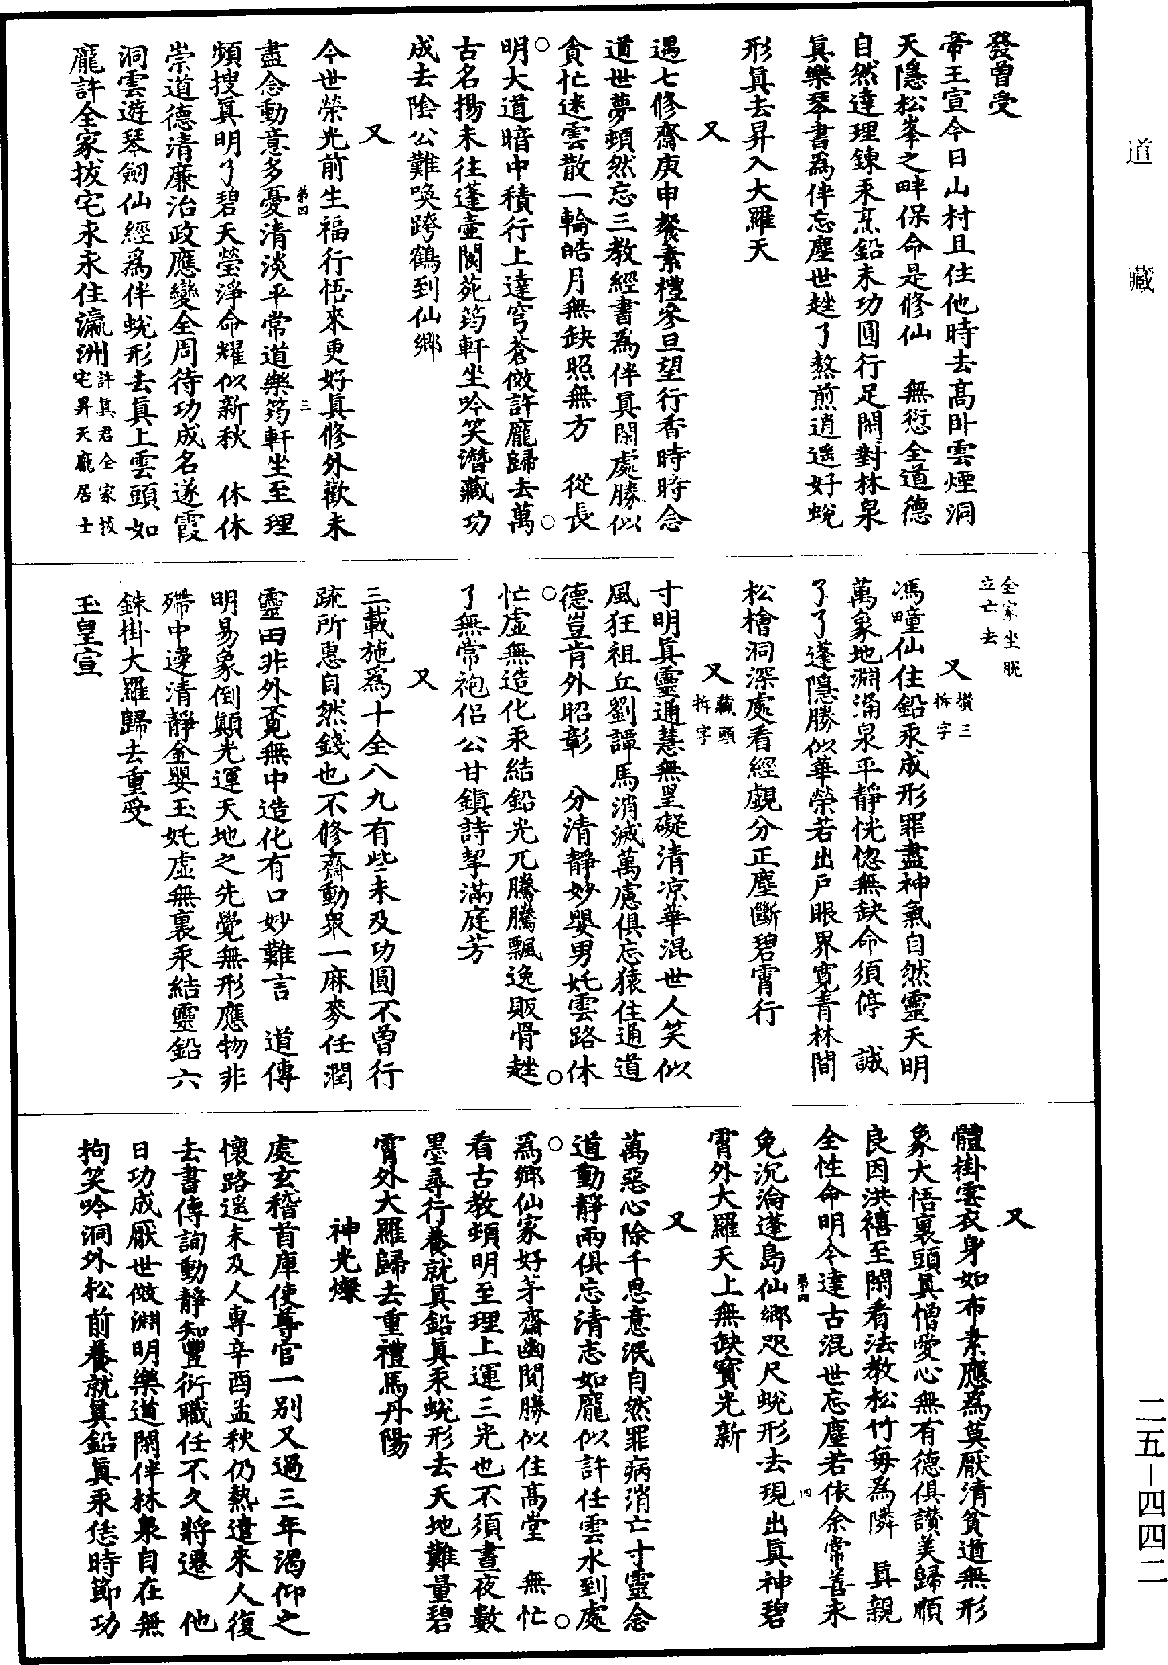 道藏
發曾受
帝王宣今日山村且住他時去高卧雲煙洞
天隱松峯之畔保命是修仙　無愆全道德
自然達理鍊汞烹鉛未功圓行足閑對林泉
眞樂琴書爲伴忘塵世趓了熬煎逍遥好蛻
形眞去昇入大羅天
又
遇七修齋庚申餐素禮參旦望行香時時念
道世夢頓然忘三教經書爲伴眞閑處勝似
貪忙迷雲散一輪皓月無缺照無方　從長
明大道暗中積行上達穹蒼做許龐歸去萬
古名揚未往蓬壷閬苑筠軒坐吟笑潛藏功
成去陰公難喚跨鶴到仙鄉
又
今世榮光前生福行悟來更好眞修外歡未
盡念動意多憂清淡平常道樂筠軒坐至理
頻搜眞明了碧天瑩淨命耀似新秋　休休
崇道德清廉治政應變全周待功成名遂霞
洞雲遊琴劒仙經爲伴蛻形去眞上雲頭如
龐許全家拔宅永永住瀛洲許眞君全家拔宅昇天龐居士
第四
三
全家坐脫
立亡去
又攢三拆字
馮曈仙住鉛汞成形罪盡神氣自然靈天明
萬象地淵涌泉平靜恍惚無缺命須停　誠
了了達隱勝似華榮若出戸眼界寬青林間
松檜洞深處看經覷分正塵斷碧霄行
又藏頭拆字
寸明眞靈通慧無罣礙清凉華混世人笑似
風狂祖丘劉譚馬消滅萬慮俱忘猿住通道
德豈肯外昭彰　分清靜妙嬰男奼雲路休
忙虛無造化汞結鉛光兀騰騰飄逸販骨趓
了無常袍侣公甘鎮詩挐滿庭芳
又
三載施爲十全八九有些未及功圓不曾行
疏所惠自然錢也不修齋動衆一麻麥任潤
靈田非外覓無中造化有口妙難言　道傳
明易象倒顛光運天地之先覺無形應物非
殢中邊清靜金嬰玉奼虛無裏汞結靈鉛六
銖掛大羅歸去重受
玉皇宣
又
體掛雲衣身如布素應爲莫厭清貧道無形
象大悟裏頭眞僧愛心無有德俱讃美歸順
良因洪禧至閑看法教松竹每爲隣　眞親
全性命明今達古混世忘塵若依余常善永
免沉淪蓬島仙鄉咫尺蛻形去現出眞神碧
霄外大羅天上無缺寳光新
第四
四
又
萬惡心除千思意泯自然罪病消亡寸靈念
道動靜兩俱忘清志如龐似許任雲水到處
爲鄉仙家好茅齋幽閴勝似住高堂　無忙
看古教頓明至理上運三光也不須晝夜數
墨尋行養就眞鉛眞汞蛻形去天地難量碧
霄外大羅歸去重禮馬丹陽
神光燦
處玄稽首庫使尊官一別又過三年渴仰之
懷路遥未及人專辛酉孟秋仍熱遣來人復
去書傳詢動靜知豐衍職任不久將遷　他
日功成厭世倣淵明樂道閑伴林泉自在無
拘笑吟洞外松前養就眞鉛眞汞恁時節功
二五－四四二